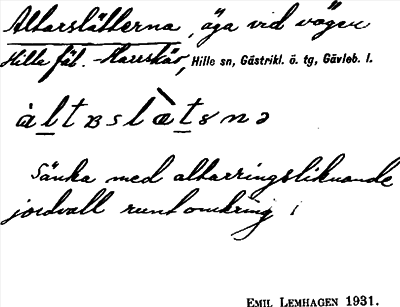 Altarslätterna, äga vid vägen
Hille fäb. - Harrskär, Hille sn, Gästrikl. ö. tg, Gävleb. l.
àḻtɐslæ̀ṯɐnə
Sänka med altarringsliknande
jordvall runtomkring
EMIL LEMHAGEN 1931.